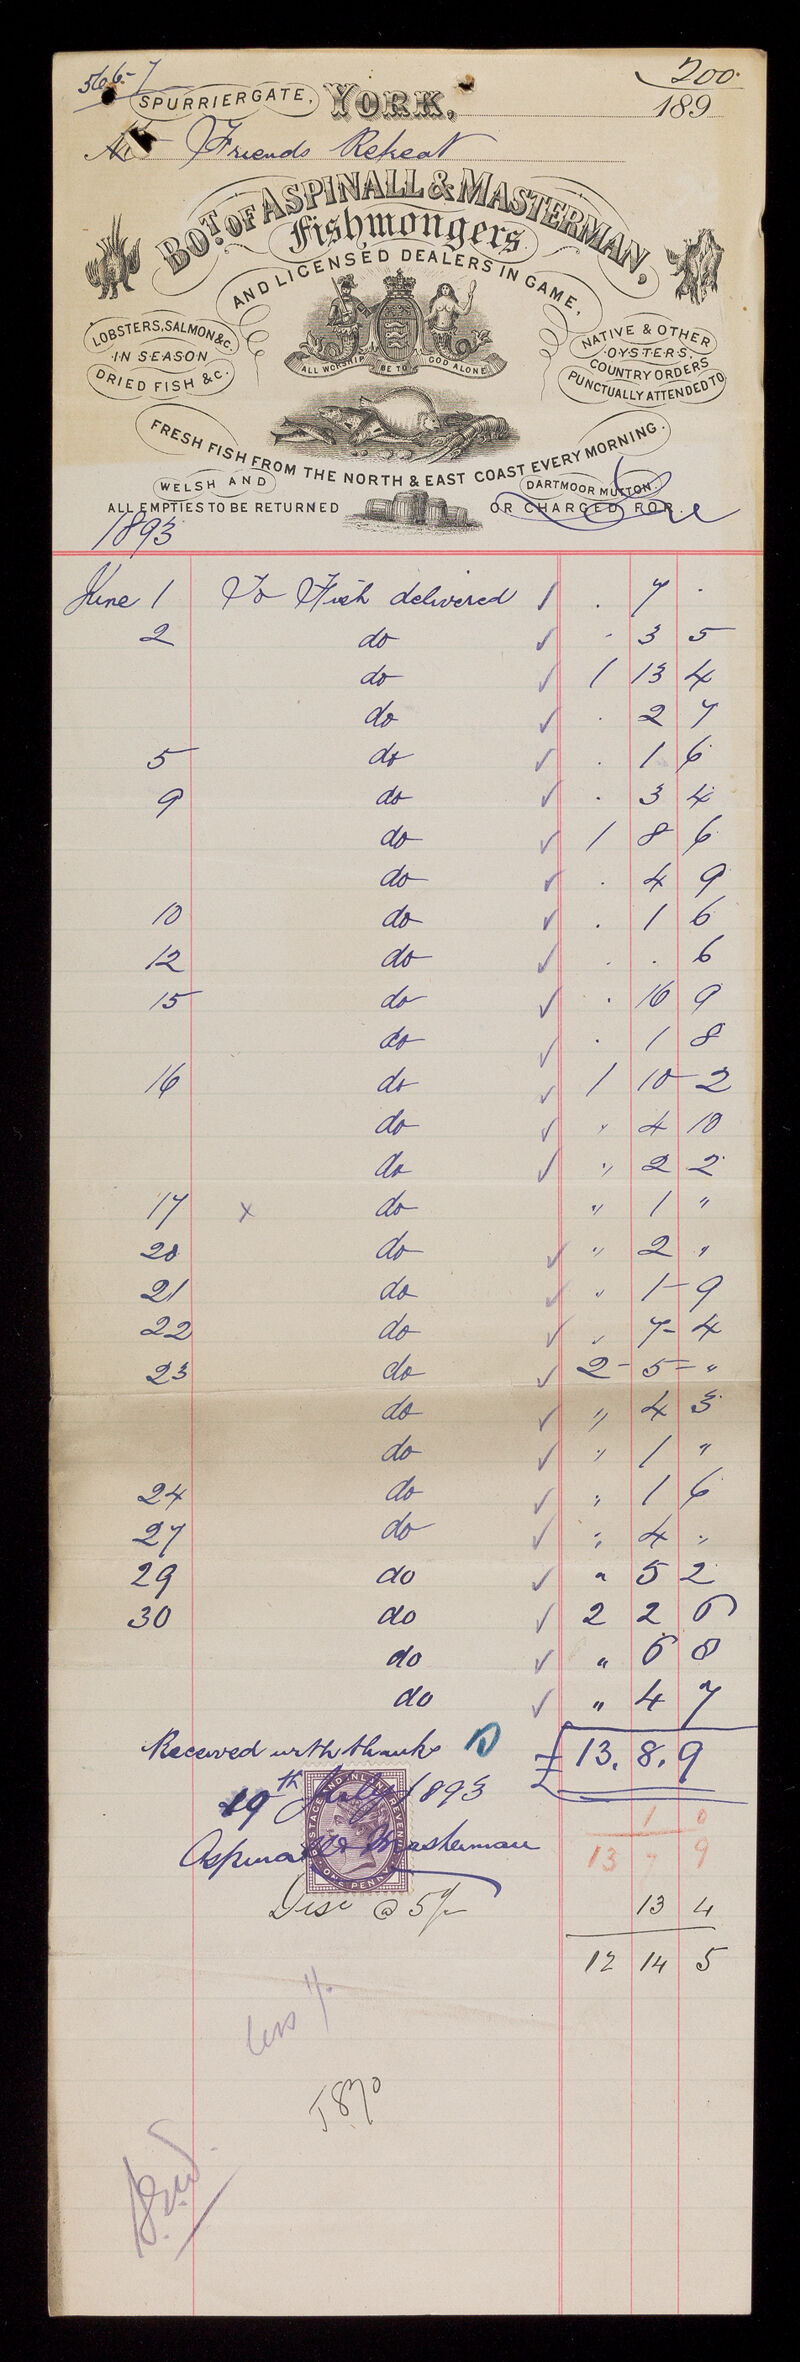 566-7
200
SPURRIERGATE, YORK, 189
Friends Retreat
BOT. OF ASPINALL & MASTERMAN,
Fishmongers
AND LICENSED DEALERS IN GAME,
LOBSTERS, SALMON &C.
IN SEASON
DRIED FISH &C.
NATIVE & OTHER
OYSTERS.
COUNTRY ORDERS
PUNCTUALLY ATTENDED TO
ALL WORSHIP BE TO GOD ALONE
FRESH FISH FROM THE NORTH & EAST COAST EVERY MORNING.
WELSH AND DARTMOOR MUTTON.
ALL EMPTIES TO BE RETURNED OR CHARGED FOR.
1893
June 1 To Fish delivered ✓ . 7 .
2 do ✓ . 3 5
do ✓ 1 13 4
do ✓ . 2 7
5 do ✓ . 1 6
9 do ✓ . 3 4
do ✓ 1 8 6
do ✓ . 4 9
10 do ✓ . 1 6
12 do ✓ . . 6
15 do ✓ . 16 9
do ✓ . 1 8
16 do ✓ 1 10 - 2
do ✓ " 4 10
do ✓ " 2 2
17 x do " 1 "
20 do ✓ " 2 "
21 do ✓ " 1 - 9
22 do ✓ " 7 - 4
23 do ✓ 2 - 5 - "
do ✓ " 4 3
do ✓ " 1 "
24 do ✓ " 1 6
27 do ✓ " 4 "
29 do ✓ " 5 2
30 do ✓ 2 2 6
do ✓ " 6 8
do ✓ " 4 7
Received with thanks £13. 8. 9
19th July 1893
1 0
Aspinall & Masterman
13 7 9
POSTAGE AND INLAND REVENUE
ONE PENNY
Disc @ 5% 13 4
12 14 5
less 1/.